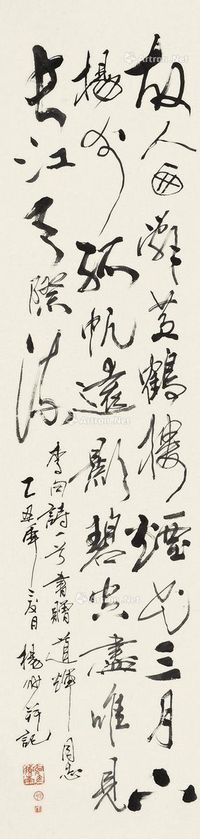 故人西辭黄鶴樓煙花三月下
揚州孤帆遠影碧空盡唯見
長江天際流
李白詩一首書贈道輝同志
乙丑年三月楊記